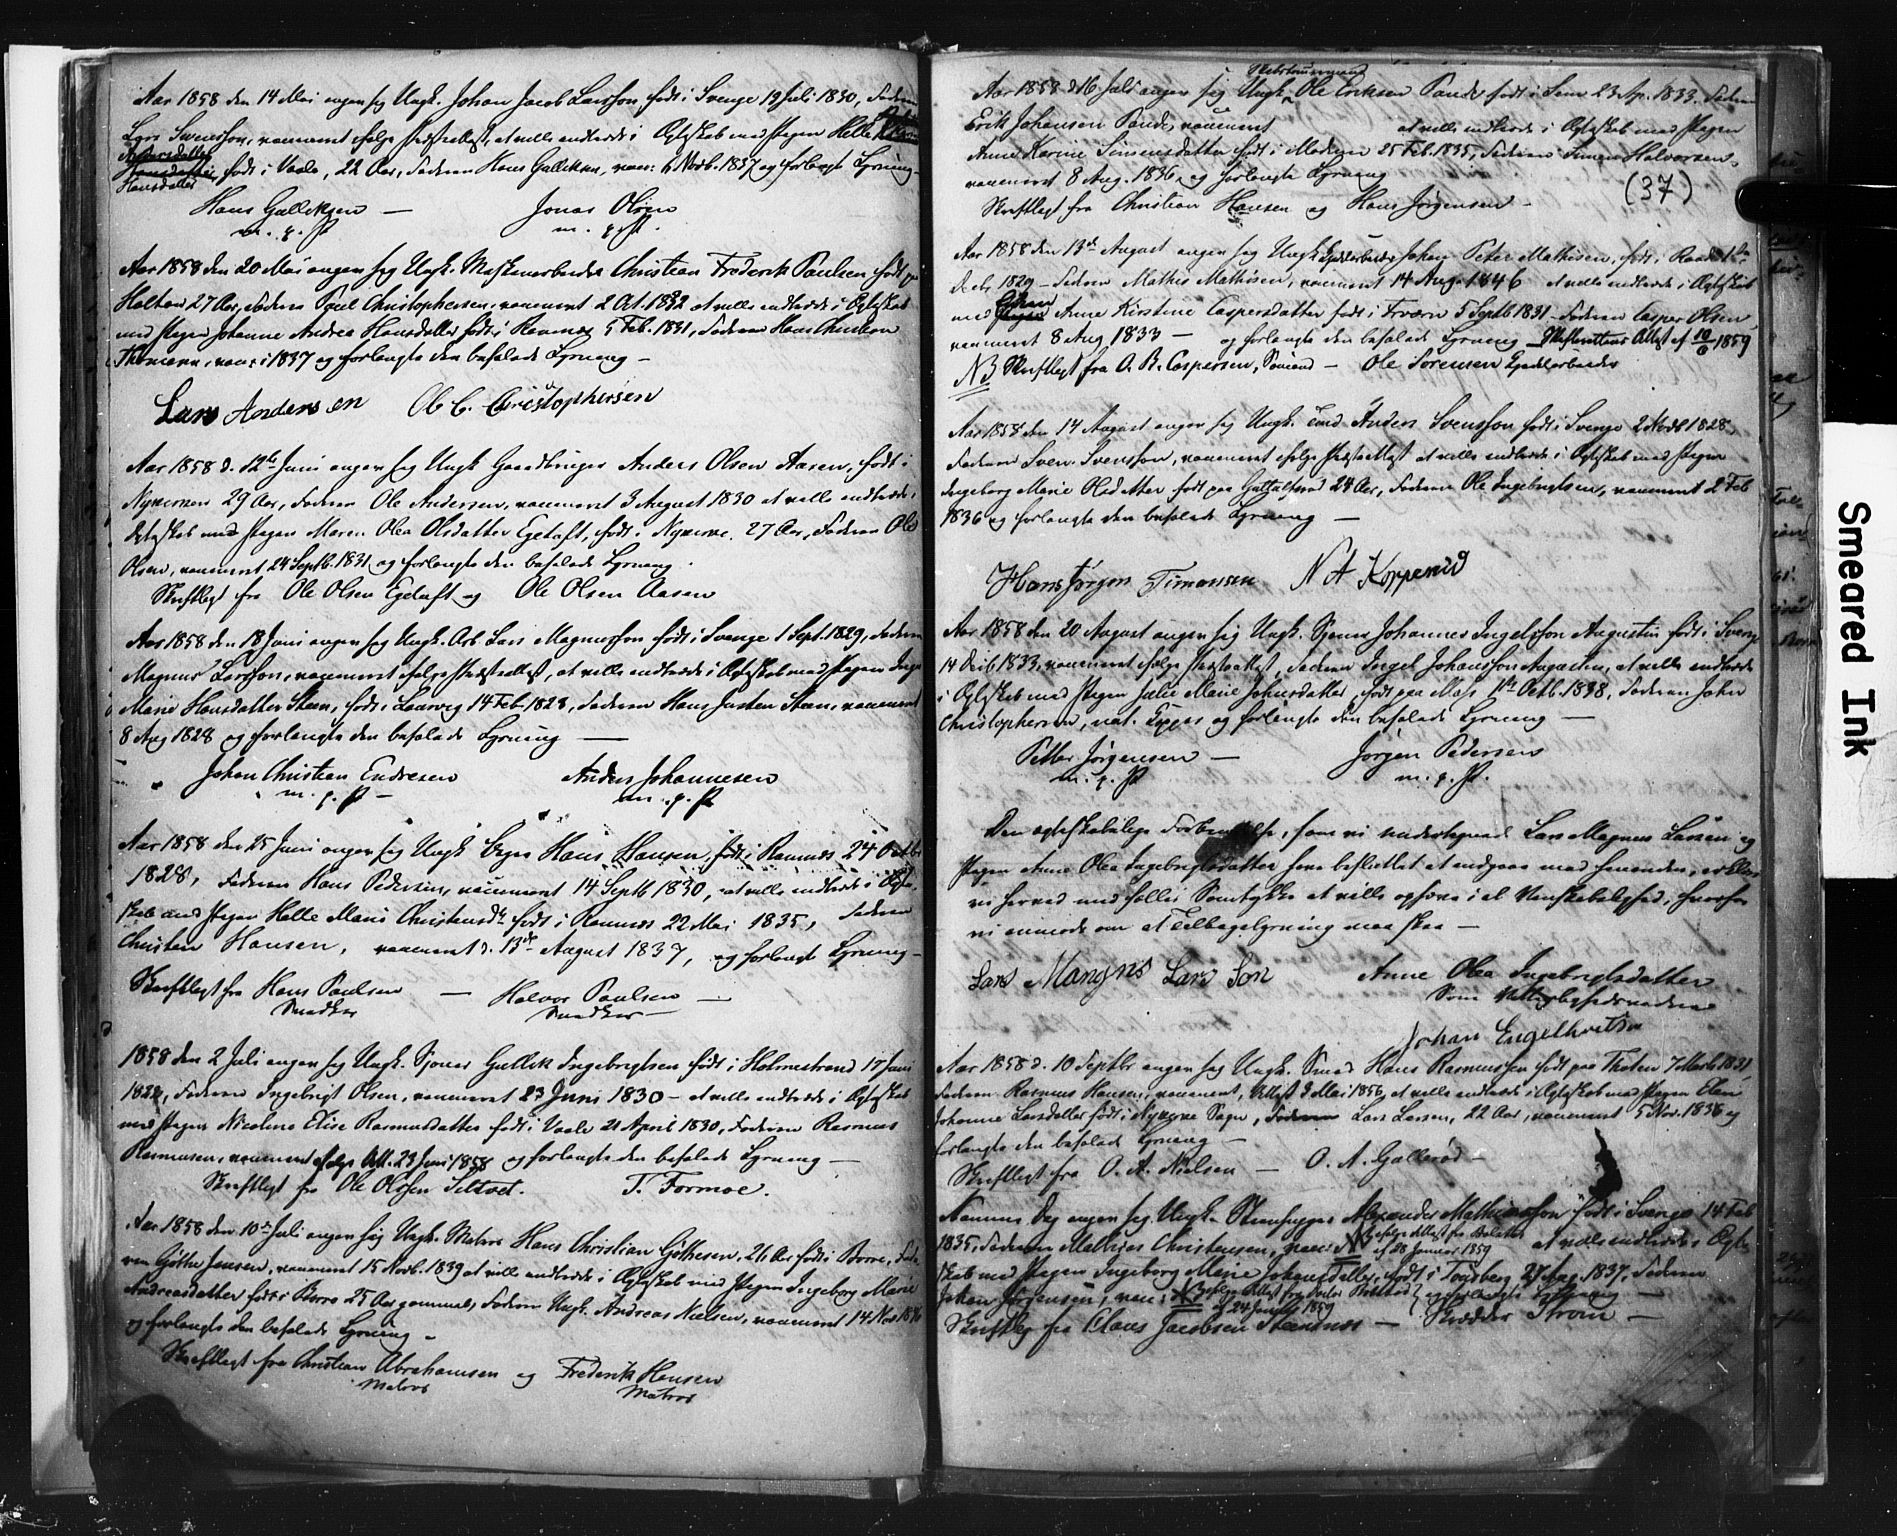 Aar 1858 den 14 Mai angav sig Ungk. Johan Jacob Larsson, født i Sverge 19 Juli 1830, Faderen
Lars Swensson, vaccineret ifølge Præsteattest, at ville indtræde i Ægteskab med Pigen Helle
Hansdatter født i Vaale, 22 Aar, Faderen Hans Gulliksen, vacc: 6 Novb. 1837 og forlangte Lysning
Hans Gulliksen — Jonas Olsen
m. p. P. m. p. P.
Aar 1858 den 20 Mai angav sig Ungk. Maskinarbeider Christian Frederik Paulsen, født paa
Holtan 27 Aar, Faderen Poul Christophersen, vaccineret 2 Oct. 1832 at ville indtræde i Ægteskab
med Pigen Johanne Andrea Hansdatter født i Ramnes 5 Feb. 1831, Faderen Hans Christian
Thomesen, vacc: i 1837 og forlangte den befalede Lysning —
Lars Andersen Ole C. Christophersen
Aar 1858 d. 12te Juni angav sig Ungk. Gaardbruger Anders Olsen Aasen, født i
Nykirken 29 Aar, Faderen Ole Andersen, vaccineret 3 August 1830 at ville indtræde i
Ægteskab med Pigen Maren Olea Olsdatter Egetuft, født i Nykirke, 27 Aar, Faderen Ole
Olsen, vaccineret 24 Septb. 1831 og forlangte den befalede Lysning.
Skriftligt fra Ole Olsen Egetuft og Ole Olsen Aasen
Aar 1858 den 18 Juni angav sig Ungk. Arb. Lars Magnusson født i Sverge 1 Sept. 1829, Faderen
Magnus Larsson, vaccineret ifølge Præsteattest, at ville indtræde i Ægteskab med Pigen Inger
Marie Hansdatter Steen, født i Laurvig 14 Feb. 1828, Faderen Hans Justen Steen, vaccineret
8 Aug 1828 og forlangte den befalede Lysning —
Johan Christian Endresen Anders Johannesen
m. p. P. — m. p. P.
Aar 1858 den 25 Juni angav sig Ungk Hans Hansen, født i Ramnes 24 Octbr
1828, Faderen Hans Pedersen, vaccineret 14 Septb 1830, at ville indtræde i Ægte-
skab med Pigen Helle Marie Christensdtr født i Ramnes 22 Mai 1835, Faderen
Christen Hansen, vaccineret d. 13de August 1837, og forlangte Lysning —
Skriftligt fra Hans Paulsen — Halvor Paulsen —
Snedker Snedker —
1858 den 2 Juli angav sig Ungk. Sjømand Gullik Ingebrigtsen født i Holmestrand 15 Juni
1828, Faderen Ingebrigt Olsen, vaccineret 23 Juni 1830 — at ville indtræde i Ægteskab
med Pigen Nicoline Elise Rasmusdatter født i Vaale 21 April 1830, Faderen Rasmus
Rasmusen, vaccineret ifølge Att. 29 Juni 1858 og forlangte den befalede Lysning —
Skriftligt fra Ole Olssen Siltvet. T. Formoe.
Aar 1858 den 10de Juli angav sig Ungk. Matros Hans Christian Gøthesen, 26 Aar født i Borre, Fade-
ren Göthe Jensen, vaccineret 15 Novb. 1839 at ville indtræde i Ægteskab med Pigen Ingeborg Marie
Andreasdatter født i Borre 25 Aar gammel, Faderen Ungk. Andreas Nielsen, vaccineret 14 Nov 1836
og forlangte den befalede Lysning —
Skriftligt fra Christian Abrahamsen og Frederik Hansen
Matros Matros
Skibstømmermand
Aar 1858 d 16 Juli angav sig Ungk. Ole Eriksen Rande født i Sem 23 Ap. 1833. Faderen
Erik Johansen Rande, vaccineret at ville indtræde i Ægteskab med Pigen
Anne Karine Simensdatter født i Modum 25 Feb. 1835, Faderen Simen Halvorsen
vaccineret 8 Aug. 1836, og forlangte Lysning
(37)
Skriftligt fra Christian Hansen og Hans Jørgensen —
Aar 1858 den 13de August angav sig Ungk Johan Peter Mathisen, født i
Decb. 1829 — Faderen Mathis Mathisen, vaccineret 14 Aug. 1846 at ville indtræde i Ægteskab
med Anne Kirstine Caspersdatter født i 5 Septb 1831. Faderen Casper Olsen
vaccineret 8 Aug 1833 — og forlangte den befalede Lysning — Attest af 10/6 1859
NB Skriftligt fra O. B. Caspersen, Sømand — Ole Sørensen
Aar 1858 den 14 August angav sig Ungk. Smed Anders Svensson født i Sverge 2 Novb 1828,
Faderen Sven Svensson, vaccineret ifølge Præsteattest at ville indtræde i Ægteskab med Pigen
Ingeborg Marie Olsdatter født paa 24 Aar, Faderen Ole Ingebrigtsen, vaccineret 2 Feb
1836 og forlangte den befalede Lysning —
Hans Jørgen Simonsen N A Kopperud
Aar 1858 den 20 August angav sig Ungk. Sjømand Johannes Ingelsson Augustin født i Sverge
14 Decb. 1833, vaccineret ifølge Præsteattest, Faderen Ingel Johansson Augustin, at ville indtræde
i Ægteskab med Pigen Julie Marie Johnsdatter, født paa Moss 1ste Octb. 1838, Faderen John
Christophersen, nat. Kopper og forlangte den befalede Lysning —
Petter Jørgensen — Jørgen Pedersen
m. p. P. m. p. P.
Den ægteskabelige Forbindelse, som vi undertegnede Lars Magnus Larsen og
Pigen Anne Olea Ingebrigtsdatter have besluttet at indgaae med hinanden, erklære
vi herved med fælles Samtykke at ville ophæve i al Venskabelighed, hvorfor
vi anmode om at Tilbagelysning maa skee —
Lars Mangns Lars Son Anne Olea Ingebrigtsdatter
Som Vitterlighedsvidner
Johan Engelhvitsn
Aar 1858 d. 10 Septbr angav sig Ungk. Smed Hans Rasmussen født paa Thoten 7 Marts 1831,
Faderen Rasmus Hansen, vaccineret, Attest 3 Mai 1856, at ville indtræde i Ægteskab med Pigen Elen
Johanne Larsdatter født i Nykirke Sogn, Faderen Lars Larsen, 22 Aar, vaccineret 5 Nov. 1836 og
forlangte den befalede Lysning —
Skriftligt fra O. A. Nielsen — O. A. Gullerød —
Samme Dag angav sig Ungk. Steenhugger Alexander Mathiasson født i Sverge 14 Feb
1835, Faderen Mathias Christensen, vacc: ifølge Attest fra af 28 Januar 1859 at ville indtræde i Ægte-
skab med Pigen Ingeborg Marie Johansdatter, født i Tønsberg 27 Aug. 1837, Faderen
Johan Jørgensen, vacc: ifølge Attest fra Doctor af 24 Januar 1859 og forlangte Lysning —
Skriftlig fra Claus Jacobsen Steensnæs — Skrædder Strøm —
Smeared Ink